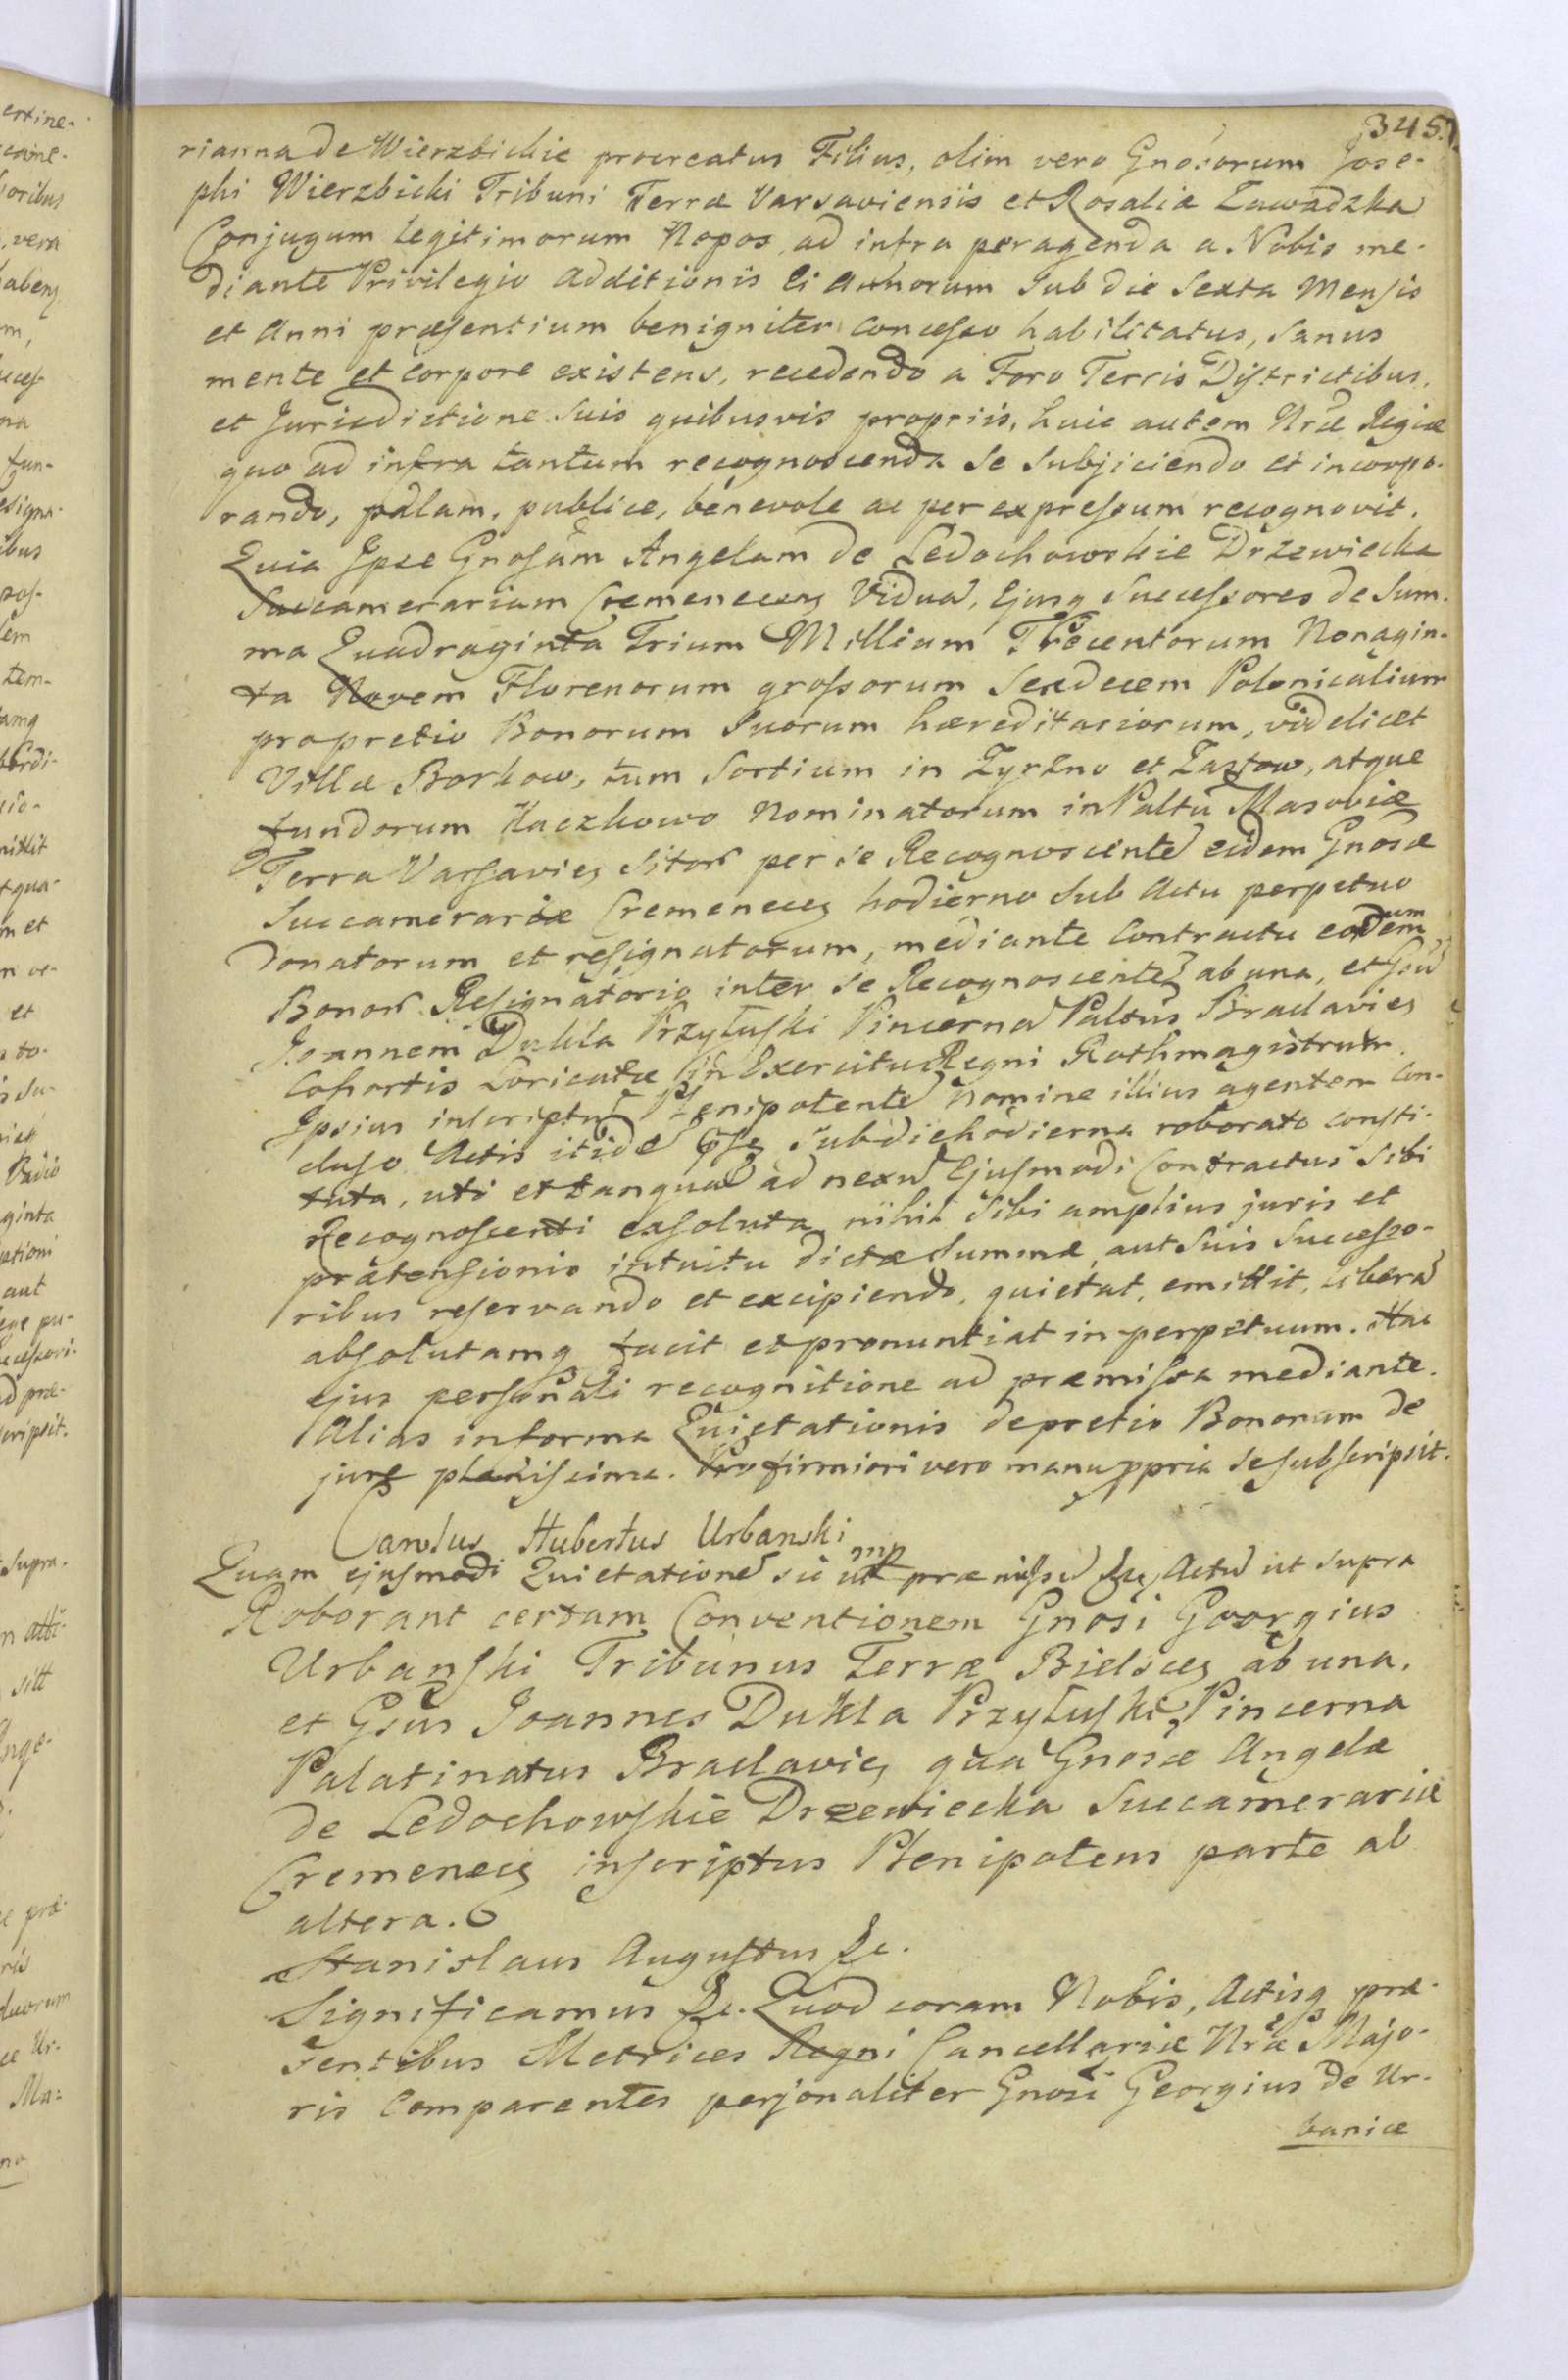 345.
rianna de Wierzbickie procreatus Filius, olim vero Gnosorum Jose-
phi Wierzbicki Tribuni Terræ Varsaviensis et Rosaliæ Zawadzka
Conjugum legitimorum Nepos, ad infra peragenda a Nobis me-
diante Privilegio additionis Ei annorum sub die Sexta Mensis
et Anni præsentium benigniter concesso habilitatus, sanus
mente et corpore existens, recedendo a Foro Terris Districtibus,
et Jurisdictione suis quibusvis propriis, huic autem Nræ Regiæ
quo ad infra tantum recognoscenda se subjiciendo et incorpo-
rando, palam, publice, benevole ac per expressum recognovit.
Quia Ipse Gnosam Angelam de Ledochowskie Drzewiecka
Succamerariam Cremenecens Viduā, Ejusq Successores de Sum-
ma Quadraginta Trium Millium Trecentorum Nonagin-
ta Novem Florenorum grossorum Sexdecem Polonicalium
pro pretio Bonorum Suorum hæreditariorum, videlicet
Villæ Borkow, tum Sortium in Zyrzno et Zastow, atque
fundorum Kaczkowo Nominatorum in Paltu Masoviæ
Terra Varsavien sitor per se Recognoscentē eidem Gnosæ
Succamerariæ Cremenecen hodierno sub Actu perpetuo
donatorum et resignatorum, mediante Contractu eorundem
Bonor Resignatorio inter se Recognoscentē ab una, et Gsū
Joannem Dukla Przyłuski Pincernā Paltūs Braclavien
Cohortis Loricatæ in Exercitu Regni Rothmagistrum
Ipsius inscriptū Plenipotentē Nomine illius agentem con-
cluso Actis itidē pse sub die hodierna roborato consti-
tuta, uti et tanquā ad nexū Ejusmodi Contractus sibi
Recognoscenti exsoluta, nihil sibi amplius juris et
prætensionis intuitu dictæ Summæ, aut Suis Successo-
ribus reservando et excipiendo, quietat, emittit, liberā
absolutamq facit et pronuntiat in perpetuum. Hac
ejus personali recognitione ad præmissa mediante.
Alias in forma Quietationis de pretio Bonorum de
jure plenissima. Pro firmiori vero manu ppria se subscripsit.
Carolus Hubertus Urbanski
mp
Quam ejusmodi Quietationē sic ut præmissū &c Actū ut supra
Roborant certam Conventionem Gnosi Georgius
Urbanski Tribunus Terræ Bielscen ab una,
et Gsūs Joannes Dukla Przyłuski, Pincerna
Palatinatus Braclavien quā Gnosæ Angelæ
de Ledochowskie Drzewiecka Succamerariæ
Cremenecen inscriptus Plenipotens parte ab
altera.
Stanislaus Augustus &c.
Significamus &c. Quod coram Nobis, Actisq præ-
sentibus Metrices Regni Cancellariæ Nræ Majo-
ris Comparentes personaliter Gnosi Georgius de Ur-
banice